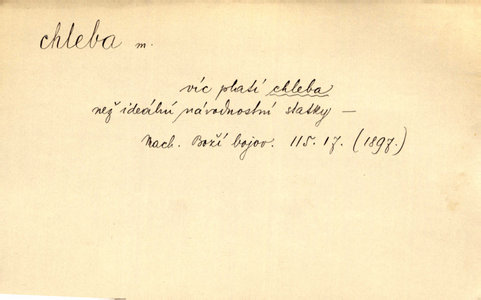 chleba m.
víc platí chleba
než ideální národnostní statky —
Mach. Boží bojov. 115.17. (1897.)